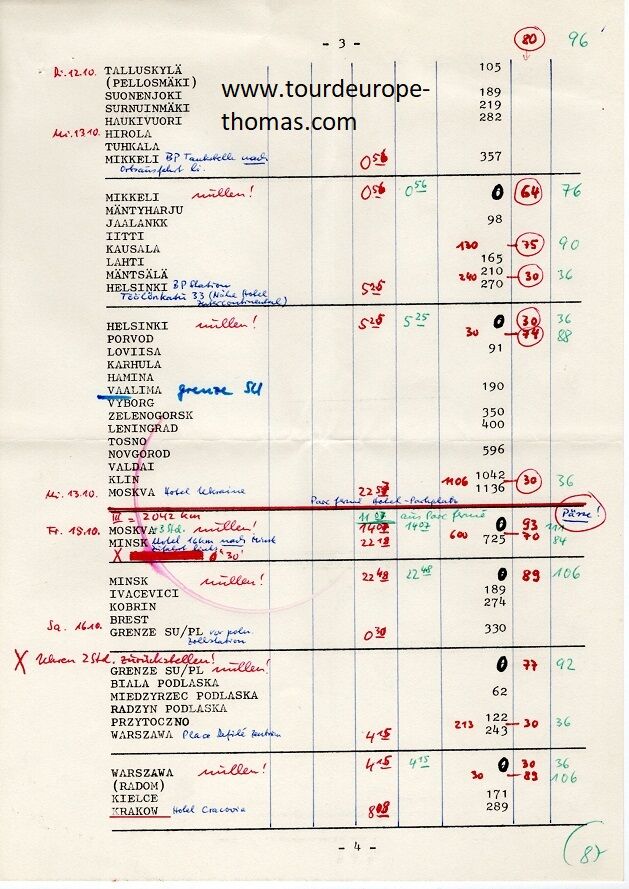 - 3 -
80
96
Di. 12.10. TALLUSKYLÄ 105
(PELLOSMÄKI)
SUONENJOKI 189
SURNUINMÄKI 219
HAUKIVUORI 282
www.tourdeurope-
thomas.com
Mi. 13.10. HIROLA
TUHKALA
MIKKELI BP Tankstelle nach 0 56 357
Ortsausfahrt li.
MIKKELI nullen! 0 56 0 56 0 64 76
MÄNTYHARJU
JAALANKK 98
IITTI
KAUSALA 130 75 90
LAHTI 165
MÄNTSÄLÄ 210
240 30 36
HELSINKI BP Station 5 25 270
Töölönkatu 33 (Nähe Hotel
Intercontinental)
HELSINKI nullen! 5 25 5 25 0 30 36
PORVOO 30 74 88
LOVIISA 91
KARHULA
HAMINA
VAALIMA grenze SU 190
VYBORG
ZELENOGORSK 350
LENINGRAD 400
TOSNO
NOVGOROD 596
VALDAI
KLIN 1106 1042 30 36
Mi. 13.10. MOSKVA Hotel Ukraine 22 57 1136
Parc fermé Hotel-Parkplatz
III = 2042 km 11 07 aus Parc fermé Pässe!
Fr. 15.10. MOSKVA +3 Std. nullen! 14 07 14 07 0 93 111
MINSK Hotel 16 km nach 22 18 600 725 70 84
X 0 30'
MINSK nullen! 22 48 22 48 0 89 106
IVACEVICI 189
KOBRIN 274
BREST
Sa. 16.10. GRENZE SU/PL vor poln. 0 30 330
Zollstation
X Uhren 2 Std. zurückstellen!
GRENZE SU/PL nullen! 0 77 92
BIALA PODLASKA
MIEDZYRZEC PODLASKA 62
RADZYN PODLASKA
PRZYTOCZNO 213 122 30 36
WARSZAWA Place Defilé Zentrum 4 15 243
WARSZAWA nullen! 4 15 4 15 0 30 36
(RADOM) 30 89 106
KIELCE 171
KRAKOW Hotel Cracovia 8 08 289
- 4 -